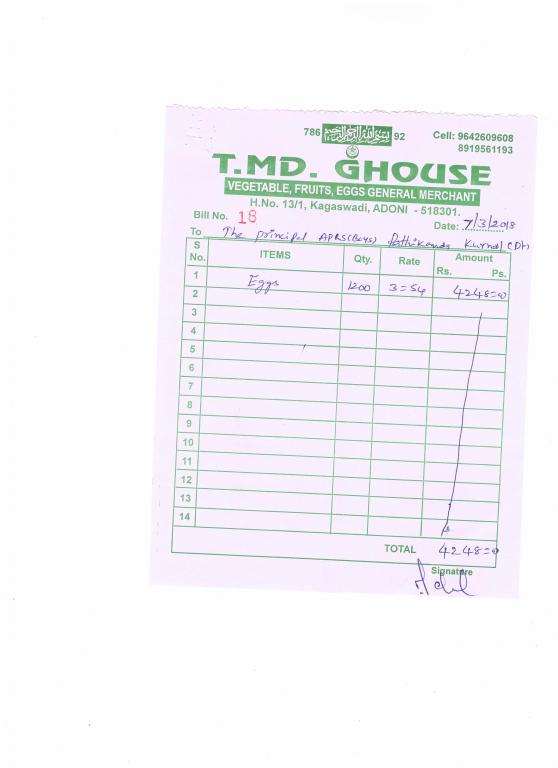 786 بسم الله الرحمن الرحيم 92
Cell: 9642609608
8919561193
T.MD. GHOUSE
VEGETABLE, FRUITS, EGGS GENERAL MERCHANT
H.No. 13/1, Kagaswadi, ADONI - 518301.
Bill No. 18 Date: 7/3/2018
To The principal APRS(Boys) Pathikonda Kurnol (Dt)
S No. ITEMS Qty. Rate Amount
Rs. Ps.
1 Eggs 1200 3=54 4248=00
2
3
4
5
6
7
8
9
10
11
12
13
14
TOTAL 4248=00
Signature